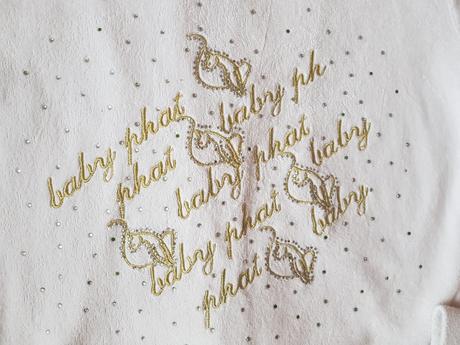 baby ph
baby phat
phat baby phat baby
baby phat baby
phat